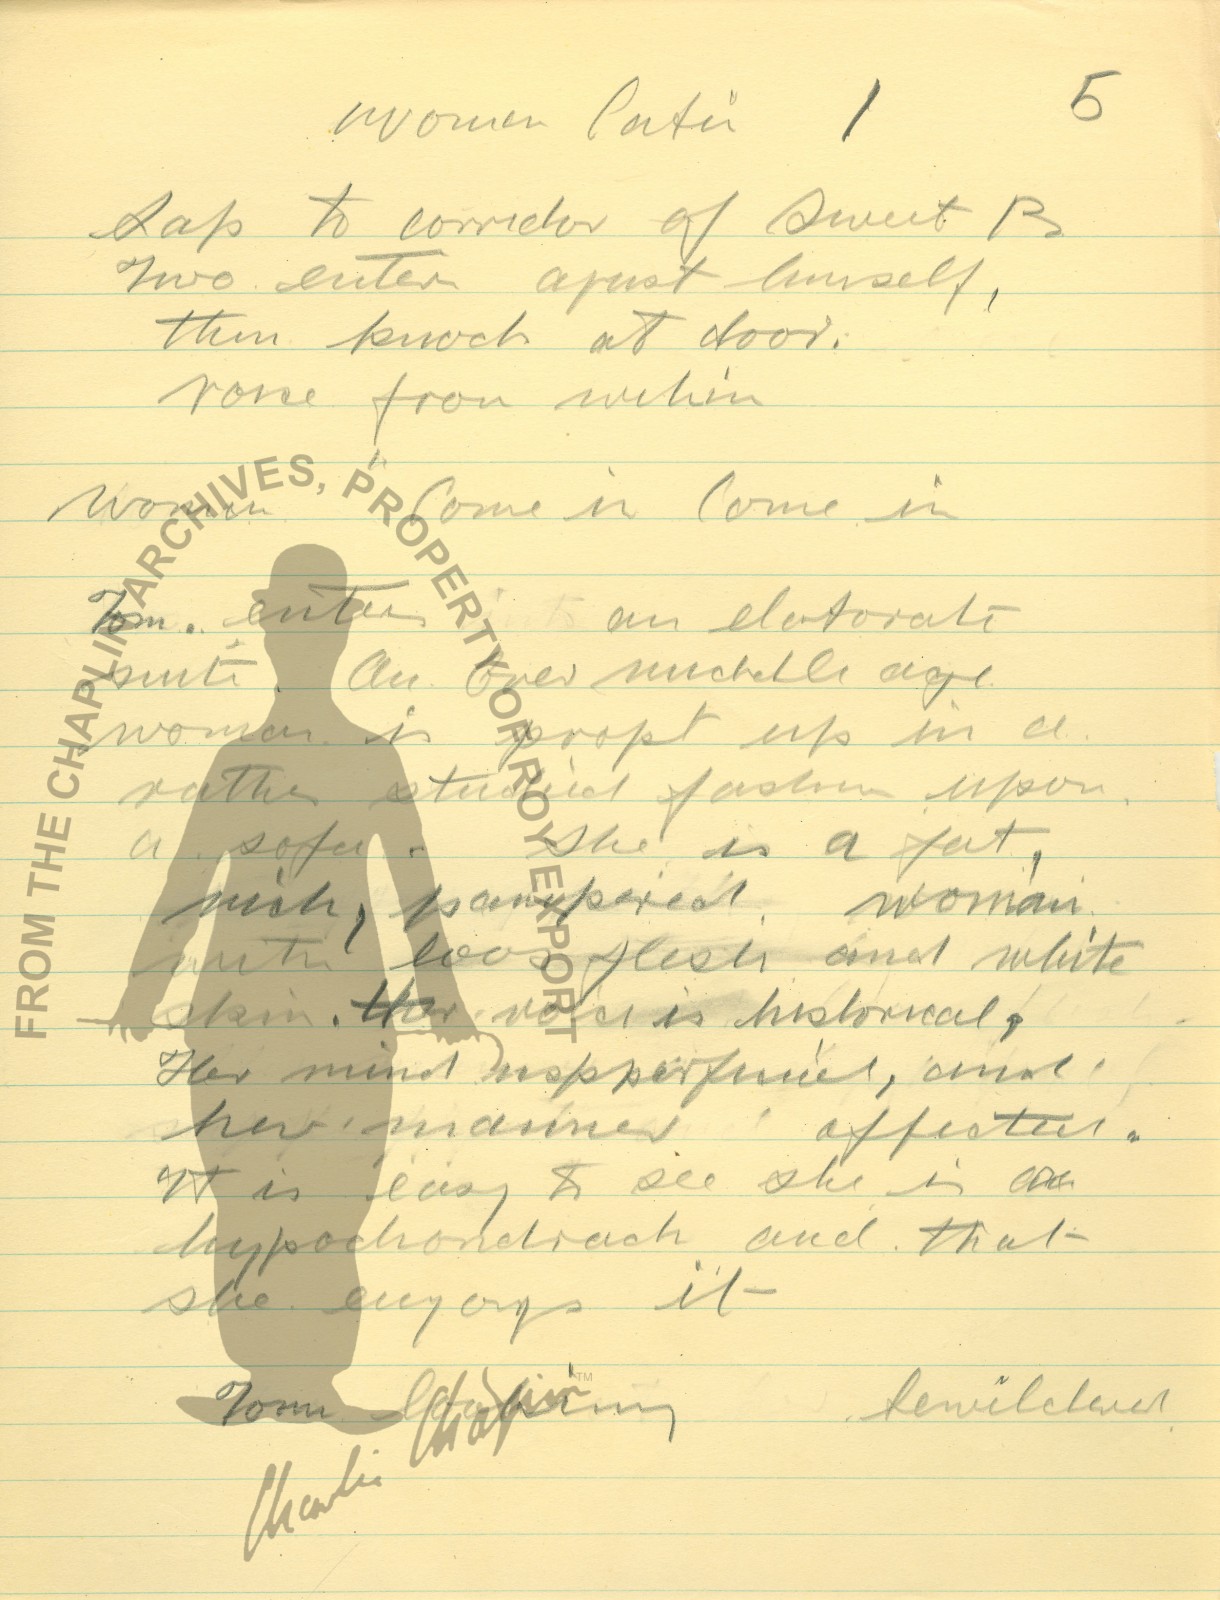 Women 1 5
Lap to corridor of Sweet B
Two enter ajust himself,
then knock at door.
voise from within
Women Come in Come in
Tom. enters an elotorate
suite. An over middle age
woman is propt up in a
rather studied fashon upon
a sofa. She is a fat,
rich, pampered woman
with loos flesh and white
skin. Her voice is historical,
Her mind and
her manner affected.
It is easy to see she is a
hypochondriach and that
she engoys it
Tom bewildered
FROM THE CHAPLIN ARCHIVES, PROPERTY OF ROY EXPORT
Charlie Chaplin™